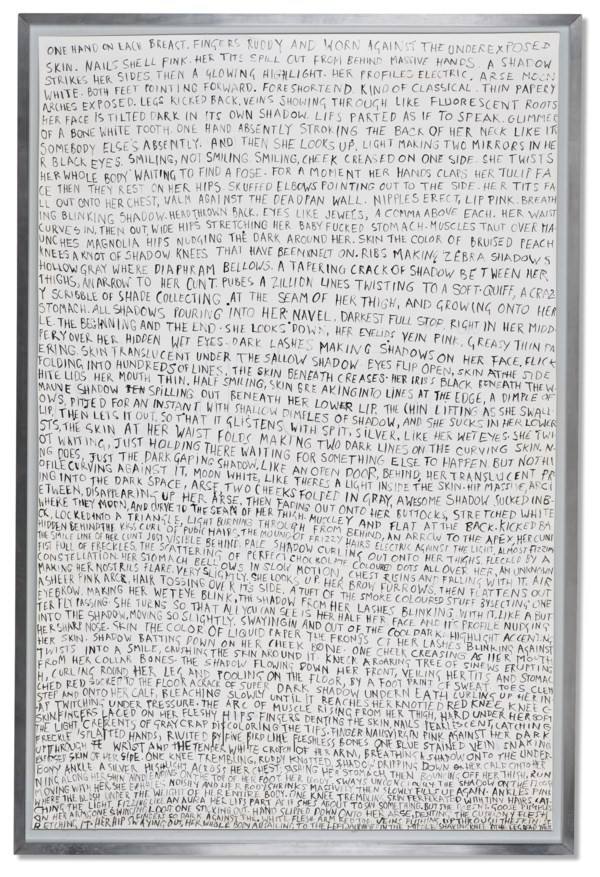 ONE HAND ON EACH BREAST. FINGERS RUDDY AND WORN AGAINST THE UNDEREXPOSED
SKIN. NAILS SHELL PINK. HER TITS SPILL OUT FROM BEHIND MASSIVE HANDS. A SHADOW
STRIKES HER SIDES THEN A GLOWING HIGHLIGHT. HER PROFILES ELECTRIC. ARSE MOON
WHITE. BOTH FEET POINTING FORWARD. FORESHORTEND KIND OF CLASSICAL. THIN PAPERY
ARCHES EXPOSED. LEGS KICKED BACK, VEINS SHOWING THROUGH LIKE FLUORESCENT ROOTS
HER FACE IS TILTED DARK IN ITS OWN SHADOW. LIPS PARTED AS IF TO SPEAK. GLIMMER
OF A BONE WHITE TOOTH. ONE HAND ABSENTLY STROKING THE BACK OF HER NECK LIKE IT
SOMEBODY ELSE'S ABSENTLY. AND THEN SHE LOOKS UP, LIGHT MAKING TWO MIRRORS IN HE
R BLACK EYES. SMILING, NOT SMILING SMILING, CHEEK CREASED ON ONE SIDE. SHE TWISTS
HER WHOLE BODY WAITING TO FIND A POSE. FOR A MOMENT HER HANDS CLASP HER TULIP FA
CE THEN THEY REST ON HER HIPS. SKUFFED ELBOWS POINTING OUT TO THE SIDE. HER TITS FA
LL OUT ONTO HER CHEST, WARM AGAINST THE DEADPAN WALL. NIPPLES ERECT, LIP PINK. BREATH
ING BLINKING SHADOW. HEAD THROWN BACK. EYES LIKE JEWELS, A COMMA ABOVE EACH. HER WAIST
CURVES IN, THEN OUT, WIDE HIPS STRETCHING HER BABY FUCKED STOMACH. MUSCLES TAUT OVER HA
UNCHES MAGNOLIA HIPS NUDGING THE DARK AROUND HER. SKIN THE COLOR OF BRUISED PEACH
KNEES A KNOT OF SHADOW KNEES THAT HAVE BEEN KNELT ON. RIBS MAKING ZEBRA SHADOWS
HOLLOW GRAY WHERE DIAPHRAM BELLOWS. A TAPERING CRACK OF SHADOW BETWEEN HER
THIGHS, AN ARROW TO HER CUNT. PUBES A ZILLION LINES TWISTING TO A SOFT QUIFF, A CRAZ
Y SCRIBBLE OF SHADE COLLECTING AT THE SEAM OF HER THIGH, AND GROWING ONTO HER
STOMACH. ALL SHADOWS POURING INTO HER NAVEL. DARKEST FULL STOP, RIGHT IN HER MIDD
LE. THE BEGINNING AND THE END. SHE LOOKS DOWN, HER EYELIDS VEIN PINK, GREASY THIN PA
PERY OVER HER HIDDEN WET EYES. DARK LASHES MAKING SHADOWS ON HER FACE, FLICK
ERING. SKIN TRANSLUCENT UNDER THE SALLOW SHADOW EYES FLIP OPEN, SKIN AT THE SIDE
FOLDING INTO HUNDREDS OF LINES, THE SKIN BENEATH CREASES. HER IRIS BLACK BENEATH THE W
HITE LIDS HER MOUTH THIN. HALF SMILING, SKIN BREAKING INTO LINES AT THE EDGE, A DIMPLE OF
MAUVE SHADOW SPILLING OUT BENEATH HER LOWER LIP. THE CHIN LIFTING AS SHE SWALL
OWS, PITTED FOR AN INSTANT WITH SHALLOW DIMPLES OF SHADOW, AND SHE SUCKS IN HER LOWER
LIP, THEN LETS IT OUT, SO THAT IT GLISTENS WITH SPIT, SILVER. LIKE HER WET EYES. SHE TWI
STS, THE SKIN AT HER WAIST FOLDS MAKING TWO DARK LINES ON THE CURVING SKIN. N
OT WAITING, JUST HOLDING THERE WAITING FOR SOMETHING ELSE TO HAPPEN BUT NOTHI
NG DOES, JUST THE DARK GAPING SHADOW, LIKE AN OPEN DOOR, BEHIND, HER TRANSLUCENT PR
OFILE CURVING AGAINST IT, MOON WHITE, LIKE THERES A LIGHT INSIDE THE SKIN. HIP MASSIVE, ARCI
NG INTO THE DARK SPACE, ARSE TWO CHEEKS FOLDED IN GRAY, AWESOME SHADOW SUCKED INB-
ETWEEN, DISAPPEARING UP HER ARSE, THEN FADING OUT ONTO HER BUTTOCKS, STRETCHED WHITE
WHERE THEY MOON, AND CURVE TO THE SEAM OF HER THIGH. MUSCLEY AND FLAT AT THE BACK. KICKED BA
CK, LOCKED INTO A TRIANGLE, LIGHT BURNING THROUGH FROM BEHIND, AN ARROW TO THE APEX, HER CUNT
HIDDEN BEHIND THE CURL OF PUBIC HAIRS, THE MOUND OF FRIZZY HAIRS ELECTRIC AGAINST THE LIGHT, ALMOST FIZZING
THE SMILE LINE OF HER CUNT JUST VISIBLE BEHIND. PALE SHADOW CURLING OUT ONTO HER THIGHS FLECKED BY A
FIST FULL OF FRECKLES. THE SCATTERING OF PERFECT CHOCOLATE COLOURED DOTS ALL OVER HER, AN UNKNOWN
CONSTELLATION. HER STOMACH BELLOWS IN SLOW MOTION, CHEST RISING AND FALLING WITH IT. AIR
MAKING HER NOSTRILS FLARE. VERY SLIGHTLY. SHE LOOKS UP. HER BROW FURROWS, THEN FLATTENS OUT
A SHEER PINK ARCH, HAIR TOSSING OVER ITS SIDE, A TUFT OF THE SMOKE COLOURED STUFF BYSECTING ONE
EYEBROW. MAKING HER WET EYE BLINK, THE SHADOW FROM HER LASHES BLINKING WITH IT. LIKE A BUT
TERFLY PASSING. SHE TURNS SO THAT ALL YOU CAN SEE IS HER HALF HER FACE AND ITS PROFILE NUDGING
INTO THE SHADOW, MOVING SO SLIGHTLY. SWAYING IN AND OUT OF THE COOL DARK. HIGHLIGHT ACCENTING
HER SHARP NOSE. SKIN THE COLOR OF LIQUID PAPER THE FRONDS OF HER LASHES BLINKING AGAINST
HER SKIN. SHADOW BATTING DOWN ON HER CHEEK BONE. ONE CHEEK CREASING AS HER MOUTH
TWISTS INTO A SMILE, CRUSHING THE SKIN AROUND IT. KNECK A ROARING TREE OF SINEWS ERUPTING
FROM HER COLLAR BONES. THE SHADOW FLOWING DOWN HER FRONT, VEILING HER TITS AND STOMAC
H, CURLING ROUND HER LEG AND POOLING ON THE FLOOR, BY A FOOT PRINT OF SWEAT. TOES CLEN
CHED RED SUCKED TO THE FLOOR A CRACK OF SUPER DARK SHADOW UNDERNEATH COMING UP HER IN
STEP AND ONTO HER CALF, BLEACHING SLOWLY UNTIL IT REACHES HER KNOTTED RED KNEE, KNEE C
AP TWITCHING UNDER PRESSURE. THE ARC OF MUSCLE RISING FROM HER THIGH, HARD UNDER HER SOFT
SKIN FINGERS LACED ON HER FLESHY HIPS FINGERS DENTING THE SKIN, NAILS PEALESCENT, CATCHING
THE LIGHT. CRESCENTS OF GRAY CRAP DISCOLORING THE TIPS. FINGER NAILS VIRGIN PINK AGAINST HER DARK
FRECKLE SPLATTED HANDS, RIVITED BY FINE BIRD LIKE FLESHLESS BONES. ONE BLUE STAINED VEIN SNAKING
UP THROUGH THE WRIST AND THE TENDER WHITE CROTCH OF HER ARM, BREATHING A SHADOW ONTO THE UNDER
EXPOSED SKIN OF HER SIDE. ONE KNEE TREMBLING, RUDDY KNOTTED, SHADOW DRIPPING DOWN
BONY ANKLE A SILVER HIGHLIGHT ACROSS HER CHEST, SASHING HER STOMACH THEN BOUNCING OFF HER THIGH, RUN
NING ALONG HER SHIN AND LANDING ON THE TOP OF HER FOOT. HER BODY SWAYS UNCONCIOUSLY, THE SHADOW ON THE FLOOR
MOVING WITH HER. SHE EXHALES NOISILY AND HER BODY SHRINKS MASSIVELY THEN SLOWLY FILLS UP AGAIN. ANKLES PINK
WHERE THE BULGE UNDER THE WEIGHT OF HER ENTIRE BODY. ONE KNEE TREMBLING SKIN PERFERATED WITH TINY HAIRS CAT
CHING THE LIGHT, FIZZING LIKE AN AURA HER LIPS PART AS IF SHES ABOUT TO SAY SOMETHING, BUT SHE DOESNT. GOOSE PIMPLES
ON HER ARM. ONE SWINGING LOOSE ONE STICKING OUT. HAND SLIPPED DOWN ONTO HER ARSE, DENTING THE CUSHIONY FLESH